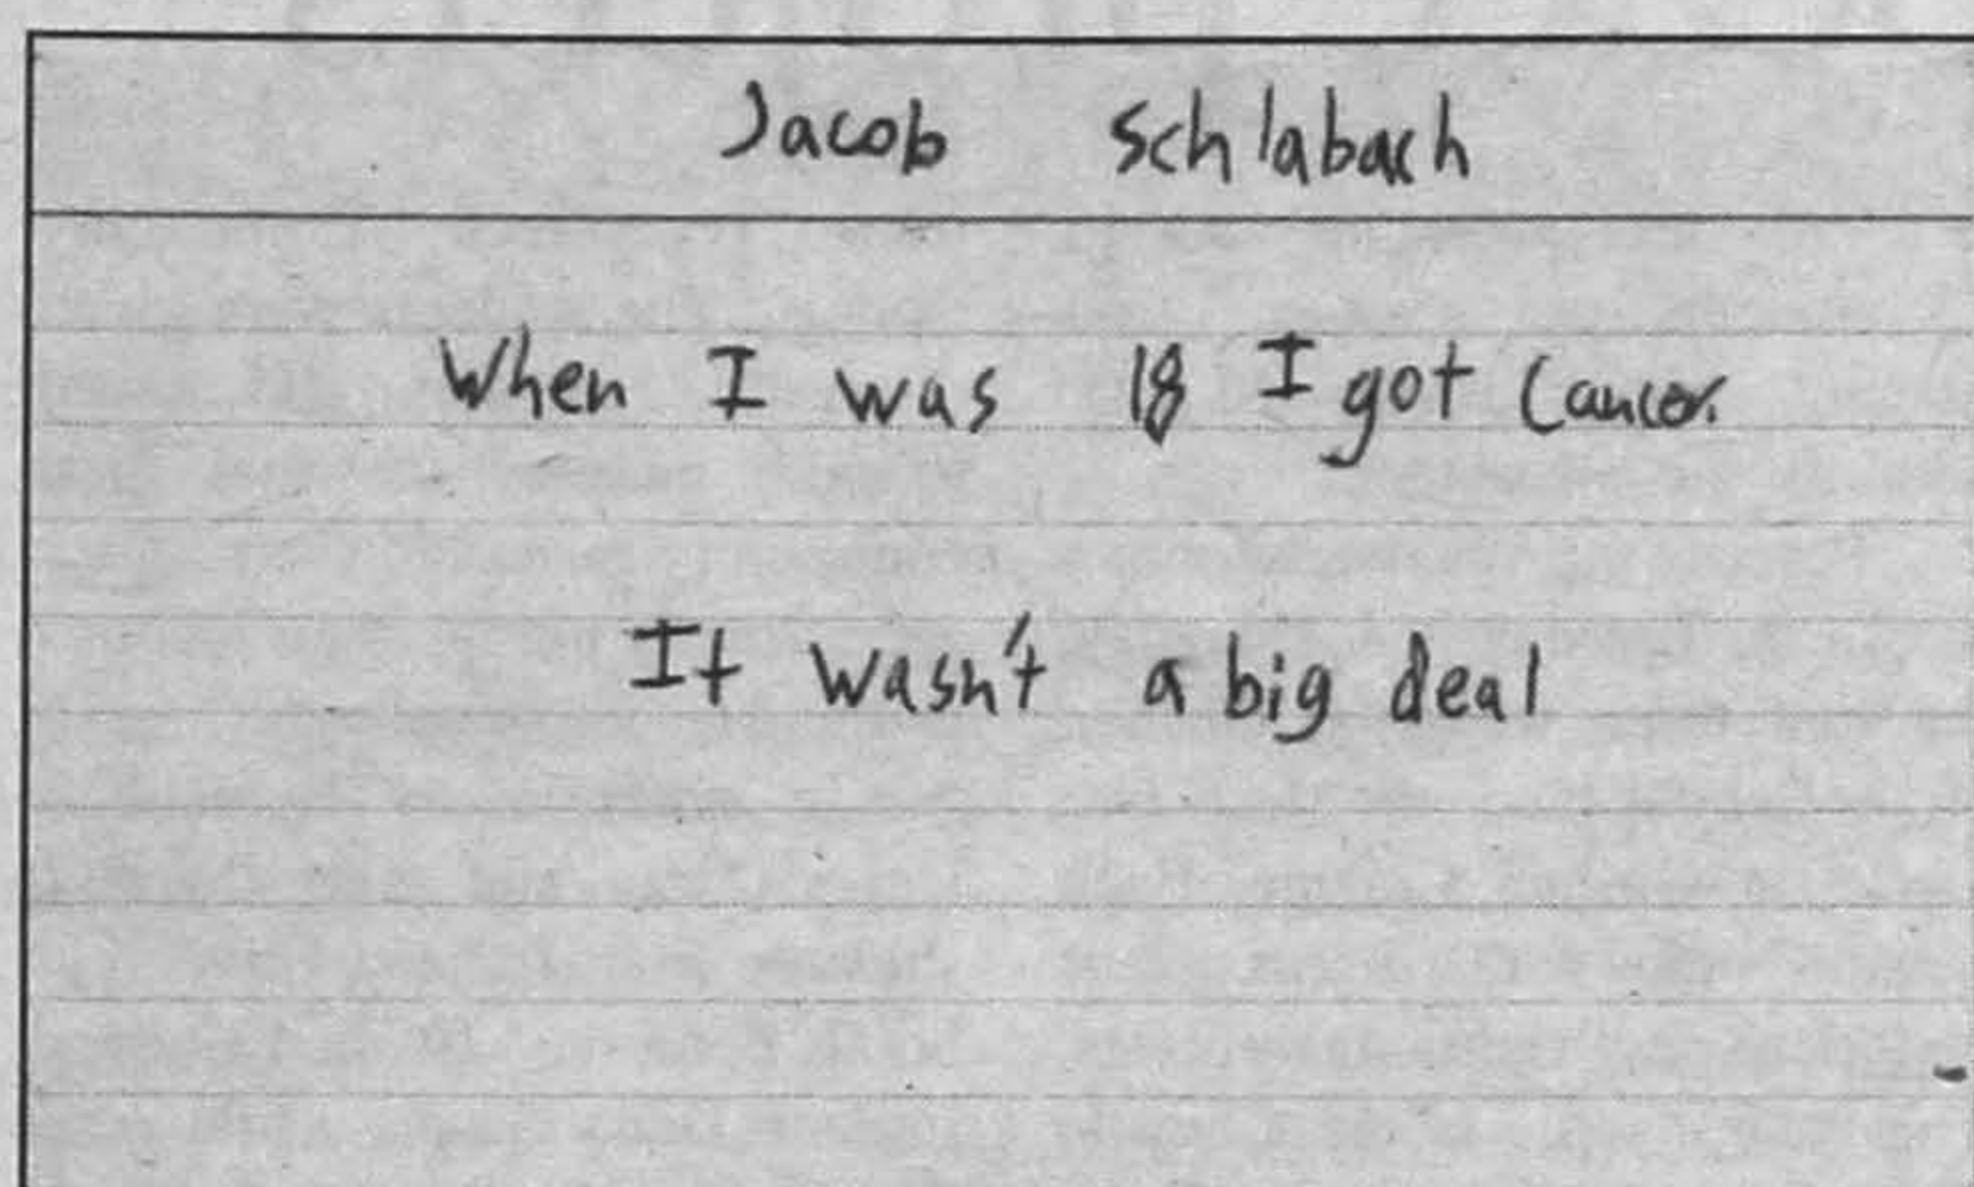 Jacob Schlabach
When I was 18 I got Cancer.
It wasn't a big deal